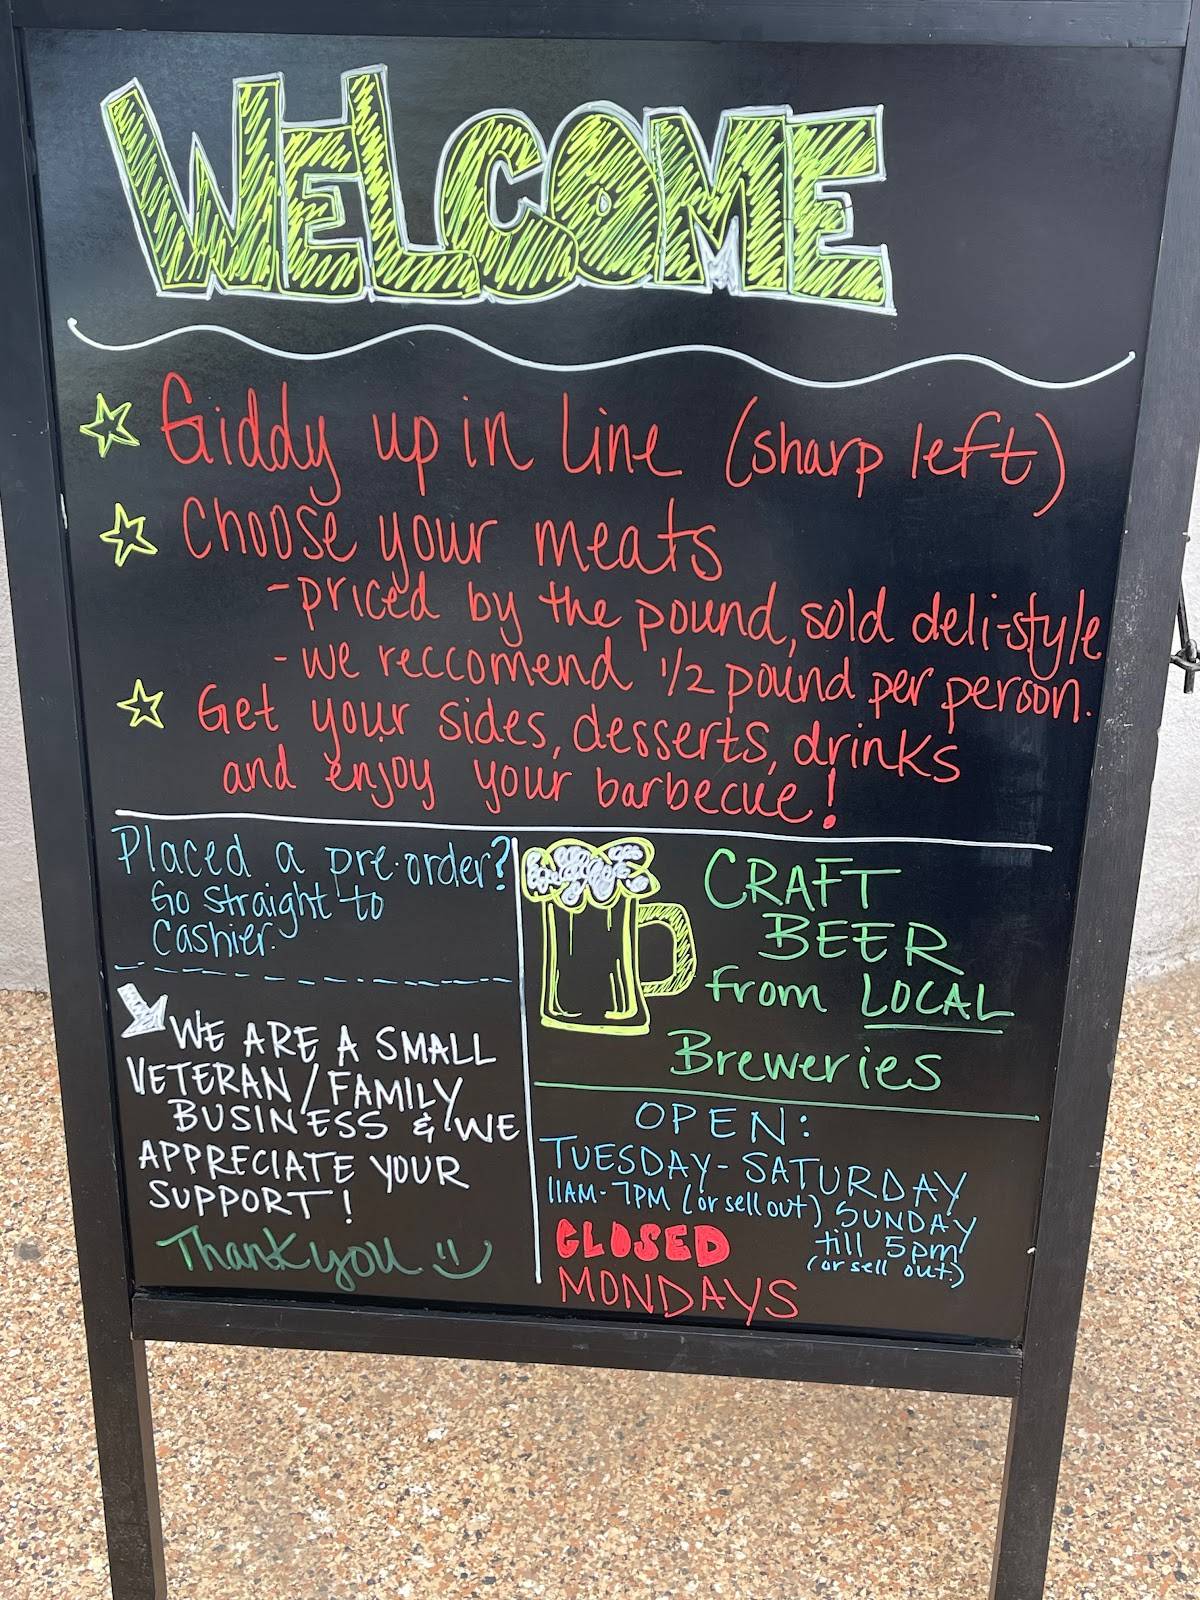 WELCOME
Giddy up in line (sharp left)
Choose your meats
- priced by the pound, sold deli-style
- we reccomend 1/2 pound per person.
Get your sides, desserts, drinks
and enjoy your barbecue!
Placed a pre-order?
Go straight to
Cashier.
WE ARE A SMALL
VETERAN/FAMILY
BUSINESS & WE
APPRECIATE YOUR
SUPPORT!
Thank you
CRAFT
BEER
from LOCAL
Breweries
OPEN:
TUESDAY - SATURDAY
11AM - 7PM (or sell out) SUNDAY
till 5pm
(or sell out.)
CLOSED
MONDAYS